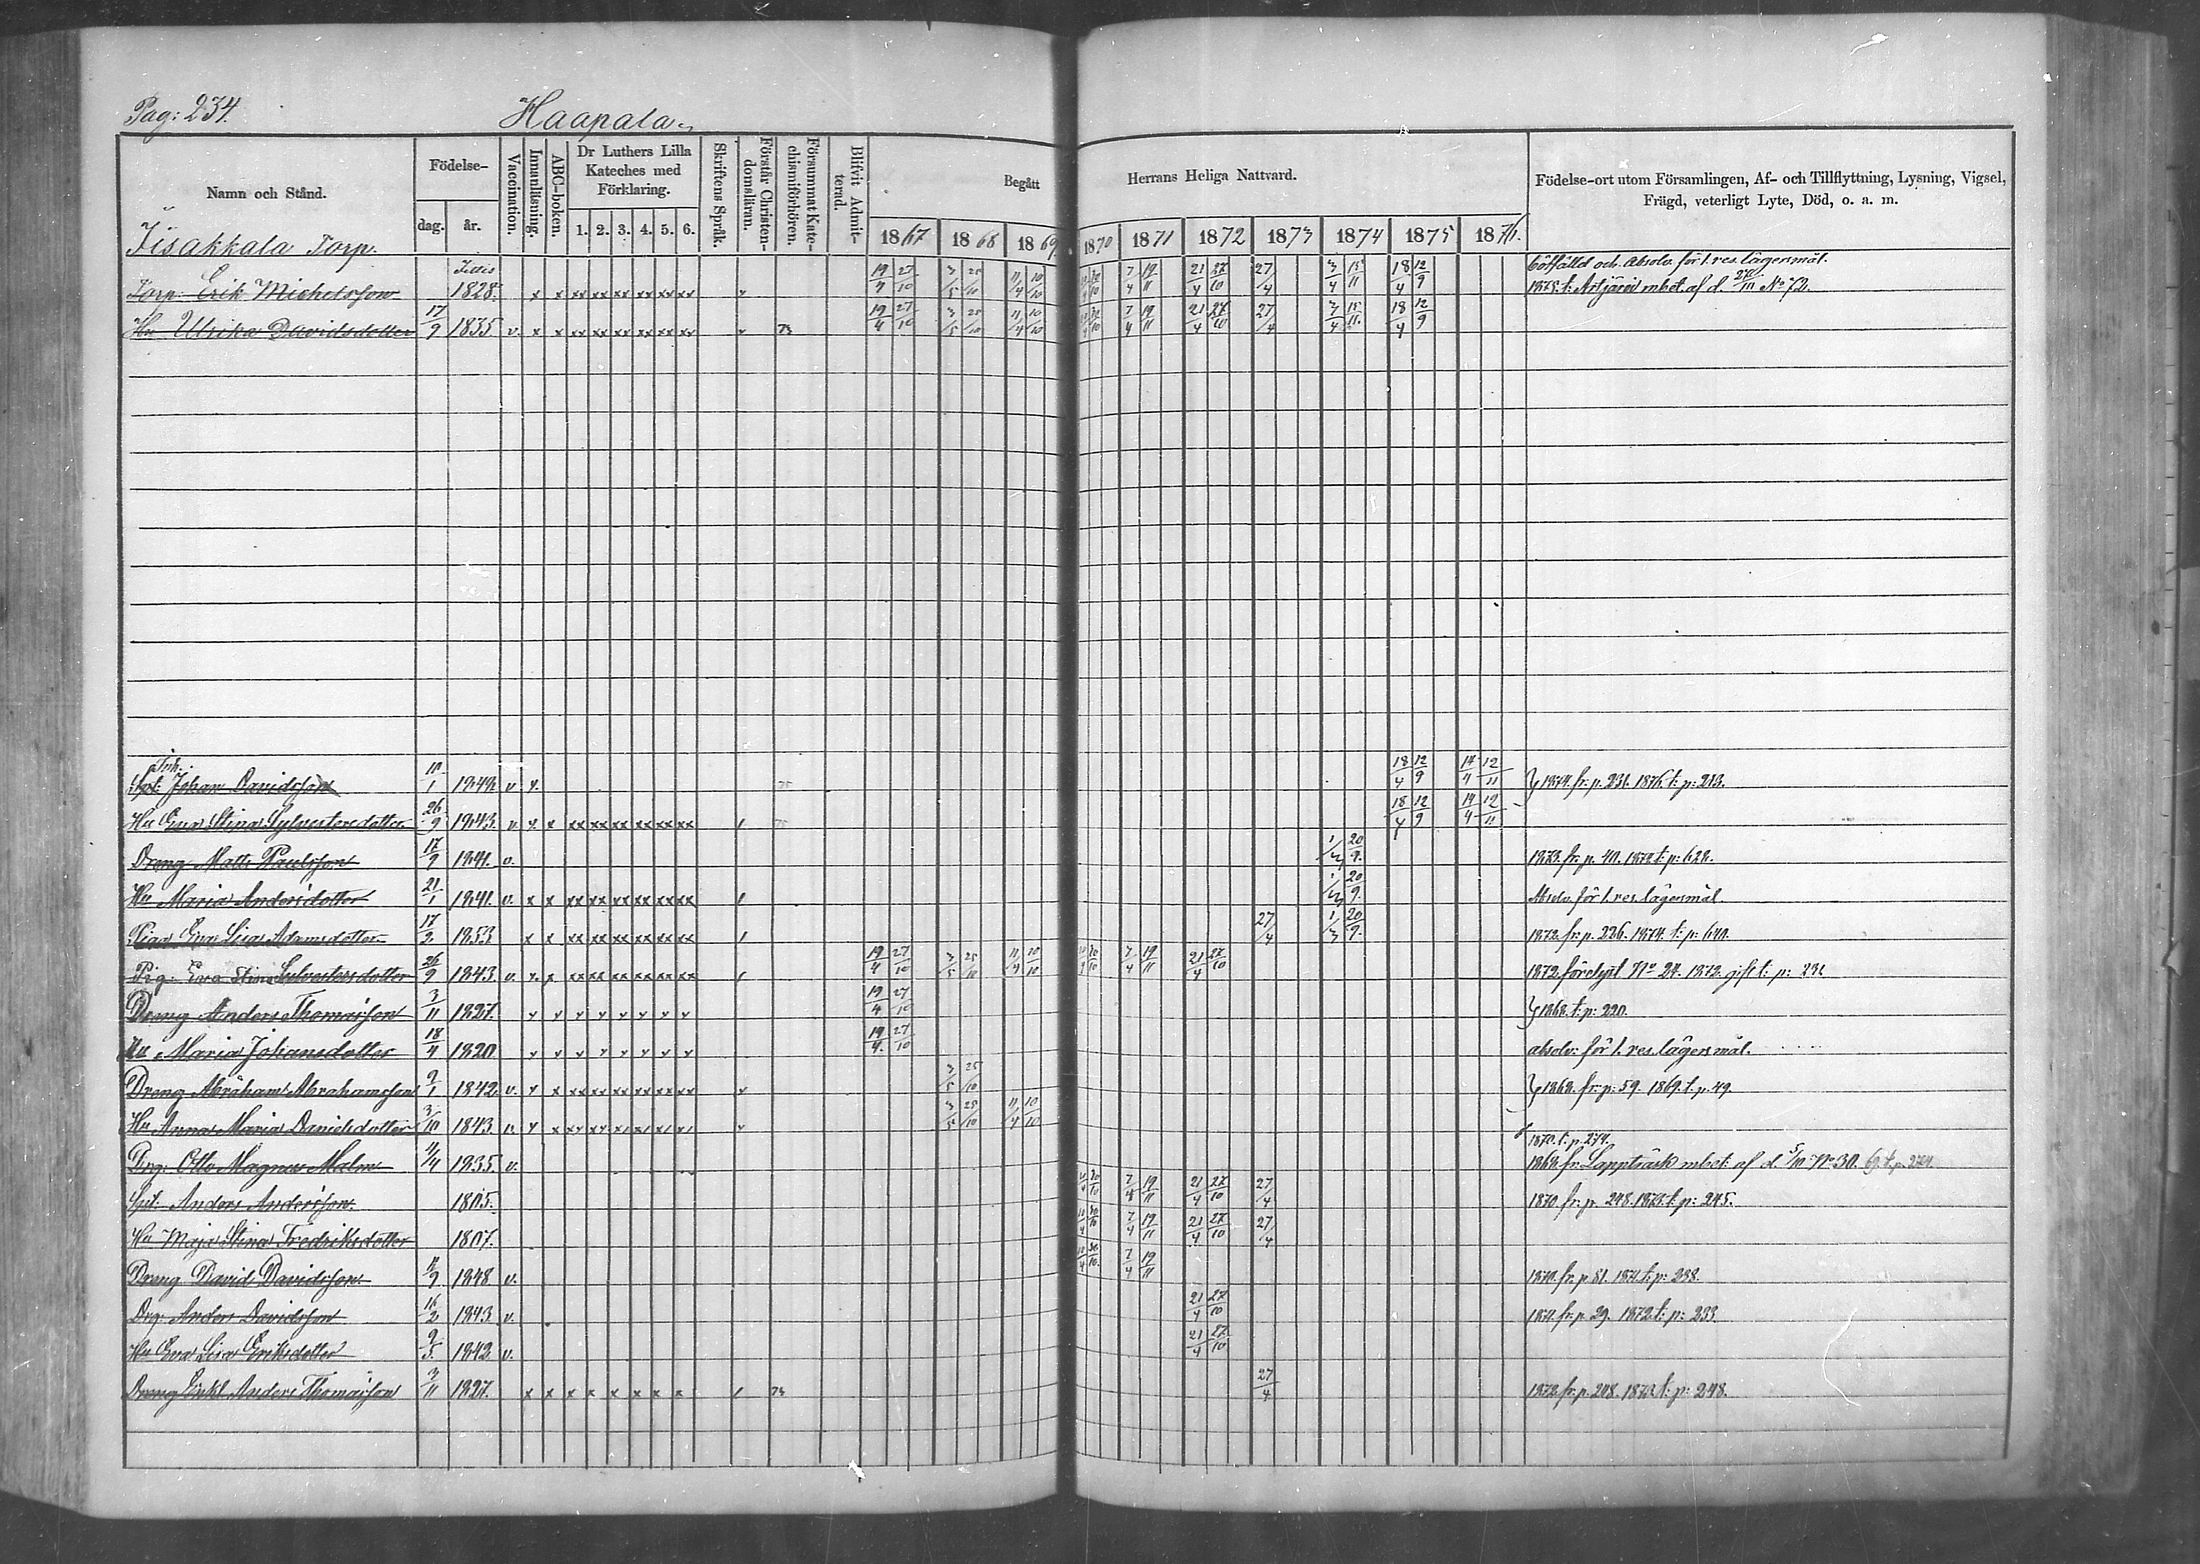 Pag: 234. Haapala
Namn och Stånd. Födelse- dag. år. Vaccination. Innanläsning. ABC-boken. Dr Luthers Lilla Kateches med Förklaring. 1. 2. 3. 4. 5. 6. Skriftens Språk. Förstår Christendomsläran. Försummat Katechismiförhören. Blifvit Admitterad. Begått Herrans Heliga Nattvard. 1867 1868 1869 1870 1871 1872 1873 1874 1875 1876. Födelse-ort utom Församlingen, Af- och Tillflyttning, Lysning, Vigsel, Frägd, veterligt Lyte, Död, o. a. m.
Iisakkala Torp.
bötfälld och Absolv. för l. res. lägersmål.
Torp. Erik Michelsson 1828. 19/4 27/10 3/5 25/10 11/4 10/10 7/4 19/11 21/4 27/10 27/4 3/4 15/11 18/4 12/9 1875. t. Artjärvi mbet. af d. No 72.
Hu Ulrika Davidsdotter 17/9 1835. v. 73 19/4 27/10 3/5 25/10 11/4 10/10 7/4 19/11 21/4 27/10 27/4 3/4 15/11. 18/4 12/9
Johan Davidsson v. 18/4 12/9 14/4 12/11 1874. fr. p. 231. 1876. t: p: 213.
Hu Eva Stina Sylvestersdotter 26/9 1843. v. 18/4 12/9 14/4 12/11
Dreng Matts Paulsson 17/9 1841. v. 20/9. 1873. fr. p. 40. t: p: 628.
Hu Maria Andersdotter 21/1 1841. v. 20/9. Absolv. för l. res. lägersmål.
Piga Eva Lisa Adamsdotter 17/2. 1853 27/4 1/3 20/9. 1872. fr. p. 226. 1874. t: p: 640.
Pig: Eva Stina Sylvestersdotter 26/9 1843. v. 19/4 27/10 3/5 25/10 11/4 10/10 7/4 19/11 21/4 27/10 1872. No 24. 1872. gift t: p: 231
Dreng Anders Thomasson 3/11 1827. 19/4 27/10 1868. t: p: 220.
Hu Maria Johansdotter 18/4 1820 19/4. 27/10 absolv: för l. res. lägersmål.
Dreng Abraham Abrahamsson 2/1 1842. v. 3/5 25/10 1868. fr: p: 59. 1869. t. p. 49
Hu Anna Maria Davidsdotter 3/10 1843 v. 3/5 25/10 11/4 10/10
1870. t: p. 274.
Drg: Otto Magnus Malm 4/4 1835. v. 1868. fr. Lappträsk mbet: af d. 5/10 No 30. 69. t. p. 274.
Anders Andersson. 1805. 7/4 19/11 21/4 27/10 27/4 1870. fr. p. 248. 1873. t: p: 245.
Hu Maja Stina Fredriksdotter 1807. 7/4 19/11 21/4 27/10 27/4
Dreng David Davidsson 1848 v. 7/4 19/11 1870. fr. p. 81. 1871. t: p: 238.
Drg: Anders Davidsson 16/2 1843. v. 21/4 27/10 1871. fr. p. 29. 1872. t: p: 233
Hu Eva Lisa Eriksdotter 2/5. 1842. v. 21/4 27/10
Dreng Enkl Anders Thomasson 3/11 1827. 73 27/4 1872. fr. p. 248. 1873. t: p: 248.